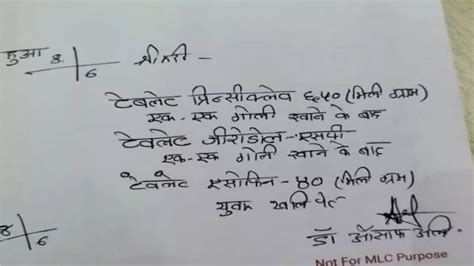 हुआ 8/6 श्रीमती -
टेबलेट प्रिन्सीक्लेव ६५० (मिली ग्राम)
एक-एक गोली खाने के बाद
टेबलेट जीरोडोल-एसपी
एक-एक गोली खाने के बाद
टेबलेट इसोफिन-४० (मिली ग्राम)
सुबह खाली पेट
8/6 डॉ ऑसाफ अली
Not For MLC Purpose